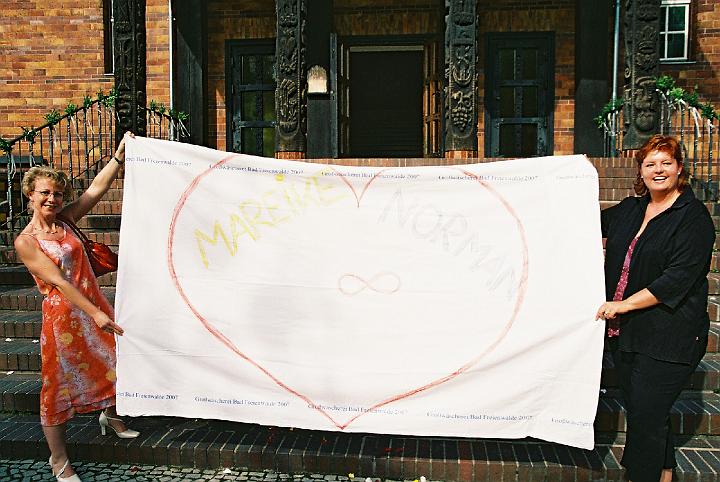 Großwäscherei Bad Freienwalde 2007 Großwäscherei Bad Freienwalde 2007 Großwäscherei Bad Freienwalde 2007 Großwäscherei
MAREIKE NORMAN
Großwäscherei Bad Freienwalde 2007 Großwäscherei Bad Freienwalde 2007 Großwäscherei Bad Freienwalde 2007 Großwäscherei